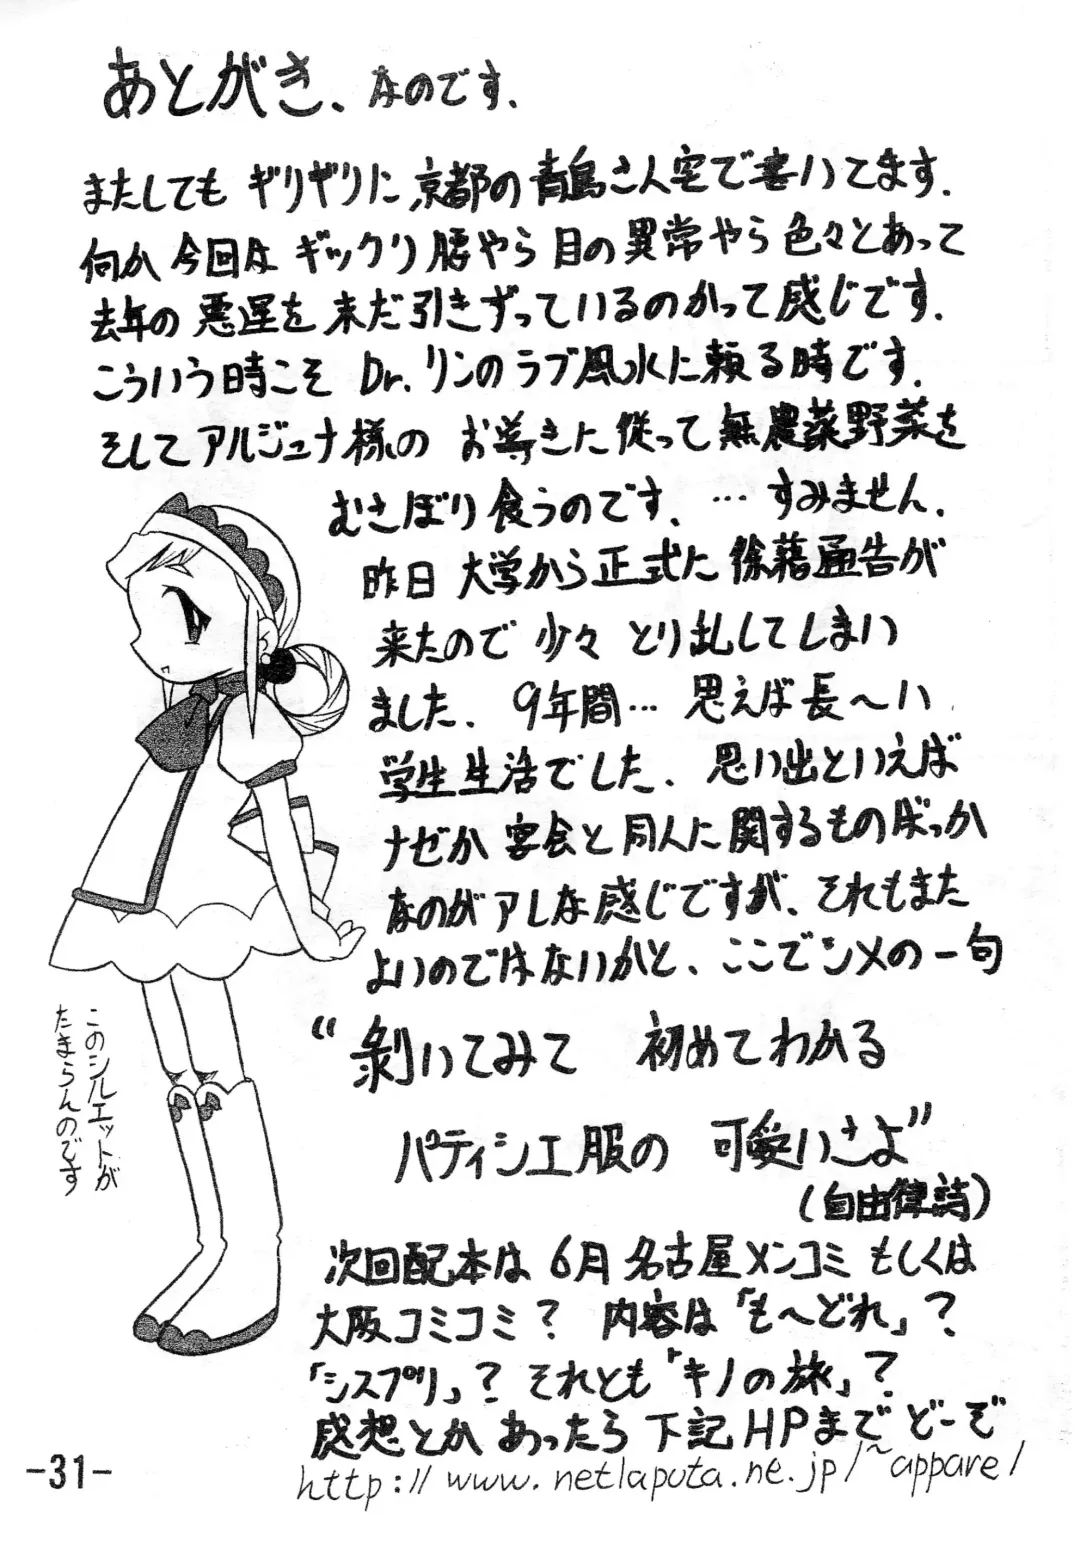 あとがき、なのです.
またしてもギリギリに、京都の青島さん宅で書いてます.
何か今回は ギックリ腰やら目の異常やら色々とあって
去年の悪運を未だ引きずっているのかって感じです.
こういう時こそ Dr.リンのラブ風水に頼る時です.
そしてアルジュナ様の お導きに従って無農薬野菜を
むさぼり食うのです. … すみません.
昨日 大学から正式に除籍通告が
来たので 少々 とり乱してしまい
ました. 9年間… 思えば長〜い
学生生活でした. 思い出といえば
ナゼか宴会と同人に関するものばっか
なのがアレな感じですが、それもまた
よいのではないかと、ここでシメの一句
“剥いてみて 初めてわかる
パティシエ服の 可愛いさよ”
(自由律詩)
次回配本は 6月 名古屋メンコミ もしくは
大阪コミコミ? 内容は「も〜どれ」?
「シスプリ」? それとも「キノの旅」?
感想とかあったら 下記HPまで どーぞ
http://www.netlaputa.ne.jp/~appare/
このシルエットが
たまらんのです
-31-